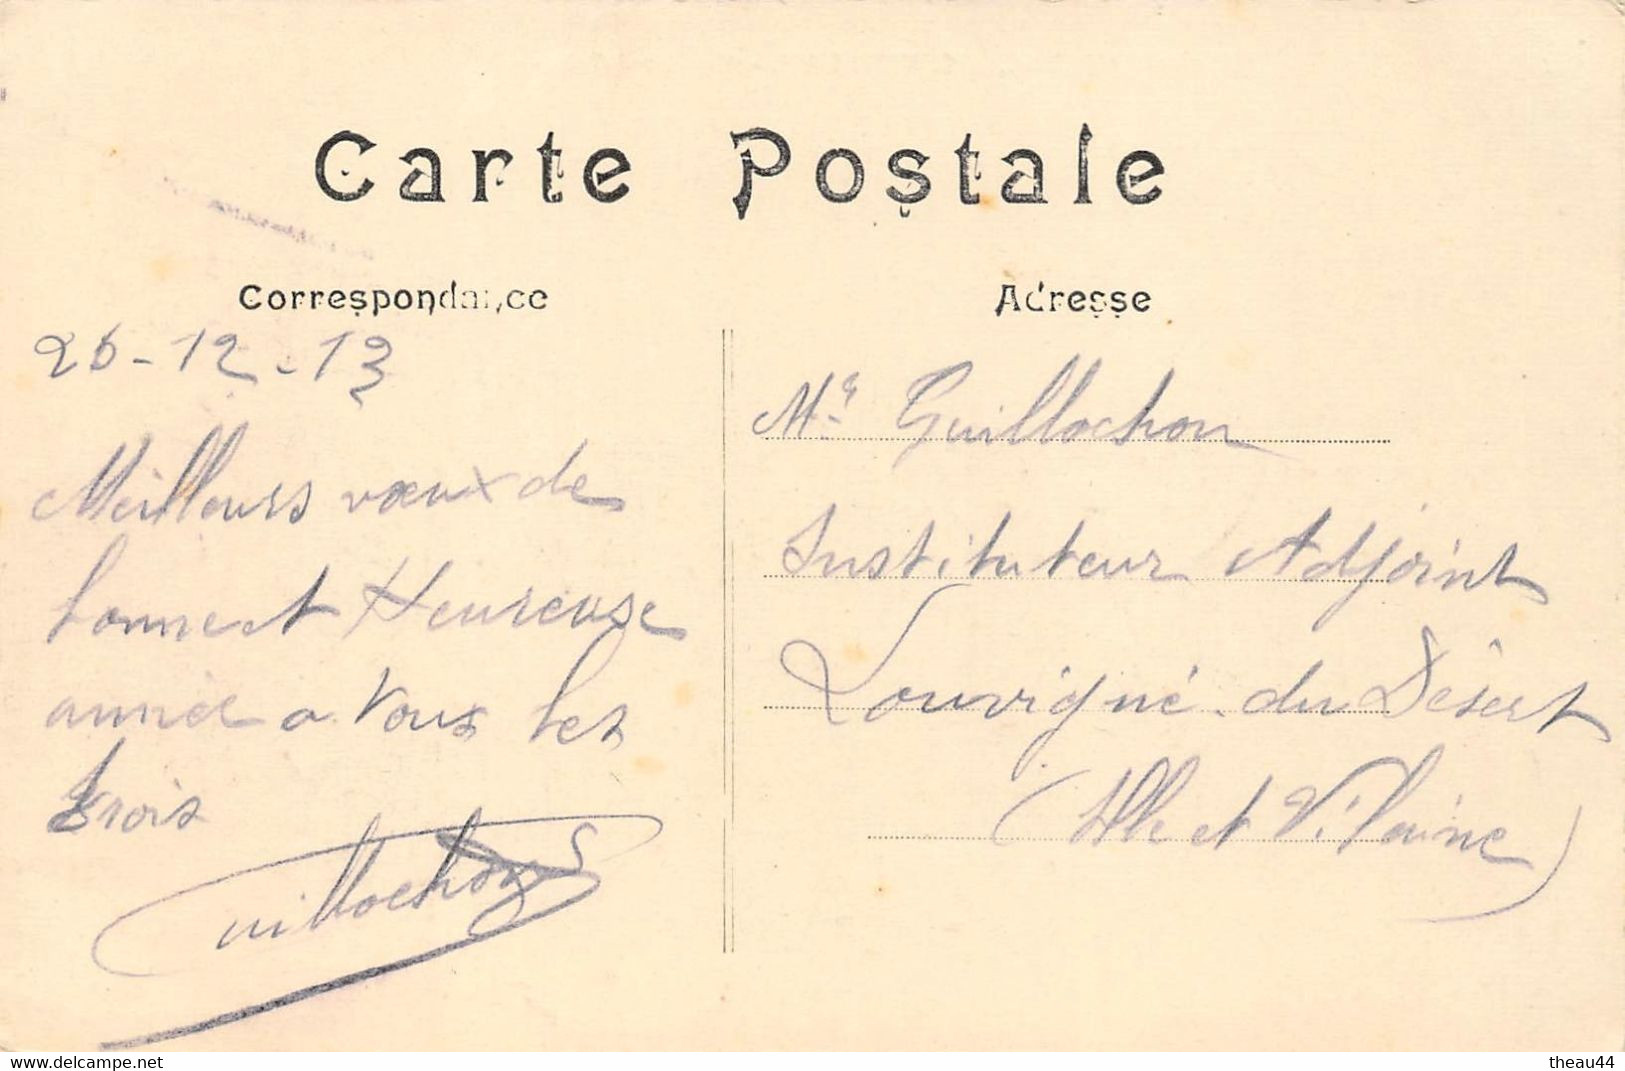 Carte Postale
Correspondance
26-12-13
Meilleurs vœux de
bonne et Heureuse
année a vous les
trois
Guillochon
Adresse
Mr Guillochon
Instituteur Adjoint
Louvigné-du-Désert
(Ille et Vilaine)
www.delcampe.net
theau44